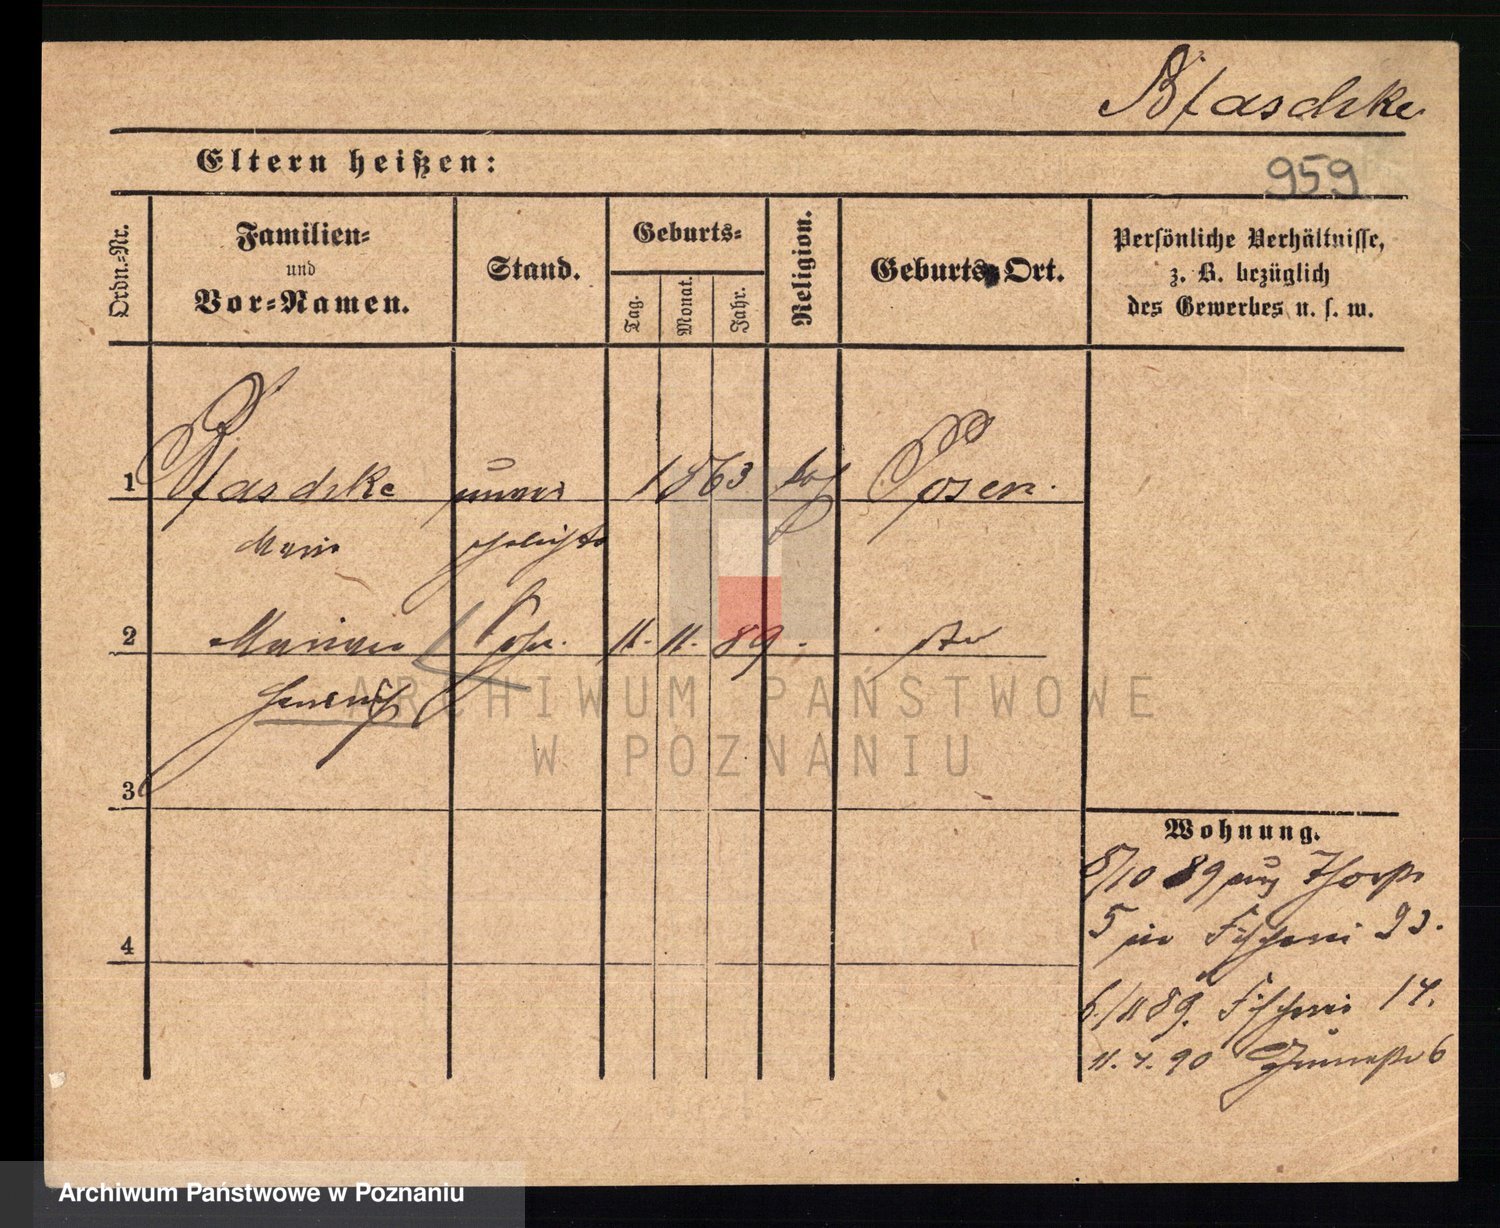 Blaschke
Eltern heißen:
959
Ordn.-Nr.
Familien-
und
Vor-Namen.
Stand.
Geburts-
Tag.
Monat.
Jahr.
Religion.
Geburts-Ort.
Persönliche Verhältnisse,
z. B. bezüglich
des Gewerbes u. s. w.
1 Blaschke unver 1863 kath Posen.
Marie ehelichte
2 Marian Sohn. 11. 11. 89.
ARCHIWUM PAŃSTWOWE
W POZNANIU
3
Wohnung.
8/10 89 aus Thorstr
5 Fischerei 23.
4
6/11 89. Fischerei 14.
11. 4. 90 6
Archiwum Państwowe w Poznaniu